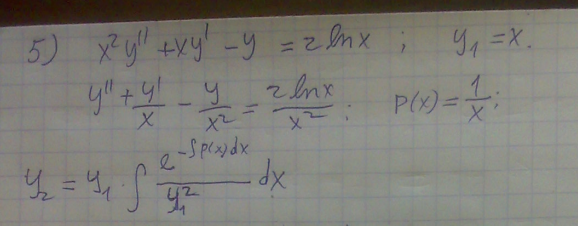 5) x²y'' + xy' - y = 2 ln x ; y₁ = x.
y'' + y'/x - y/x² = 2 ln x/x² ; p(x) = 1/x ;
y₂ = y₁ · ∫ e^(-∫p(x)dx)/y₁² dx